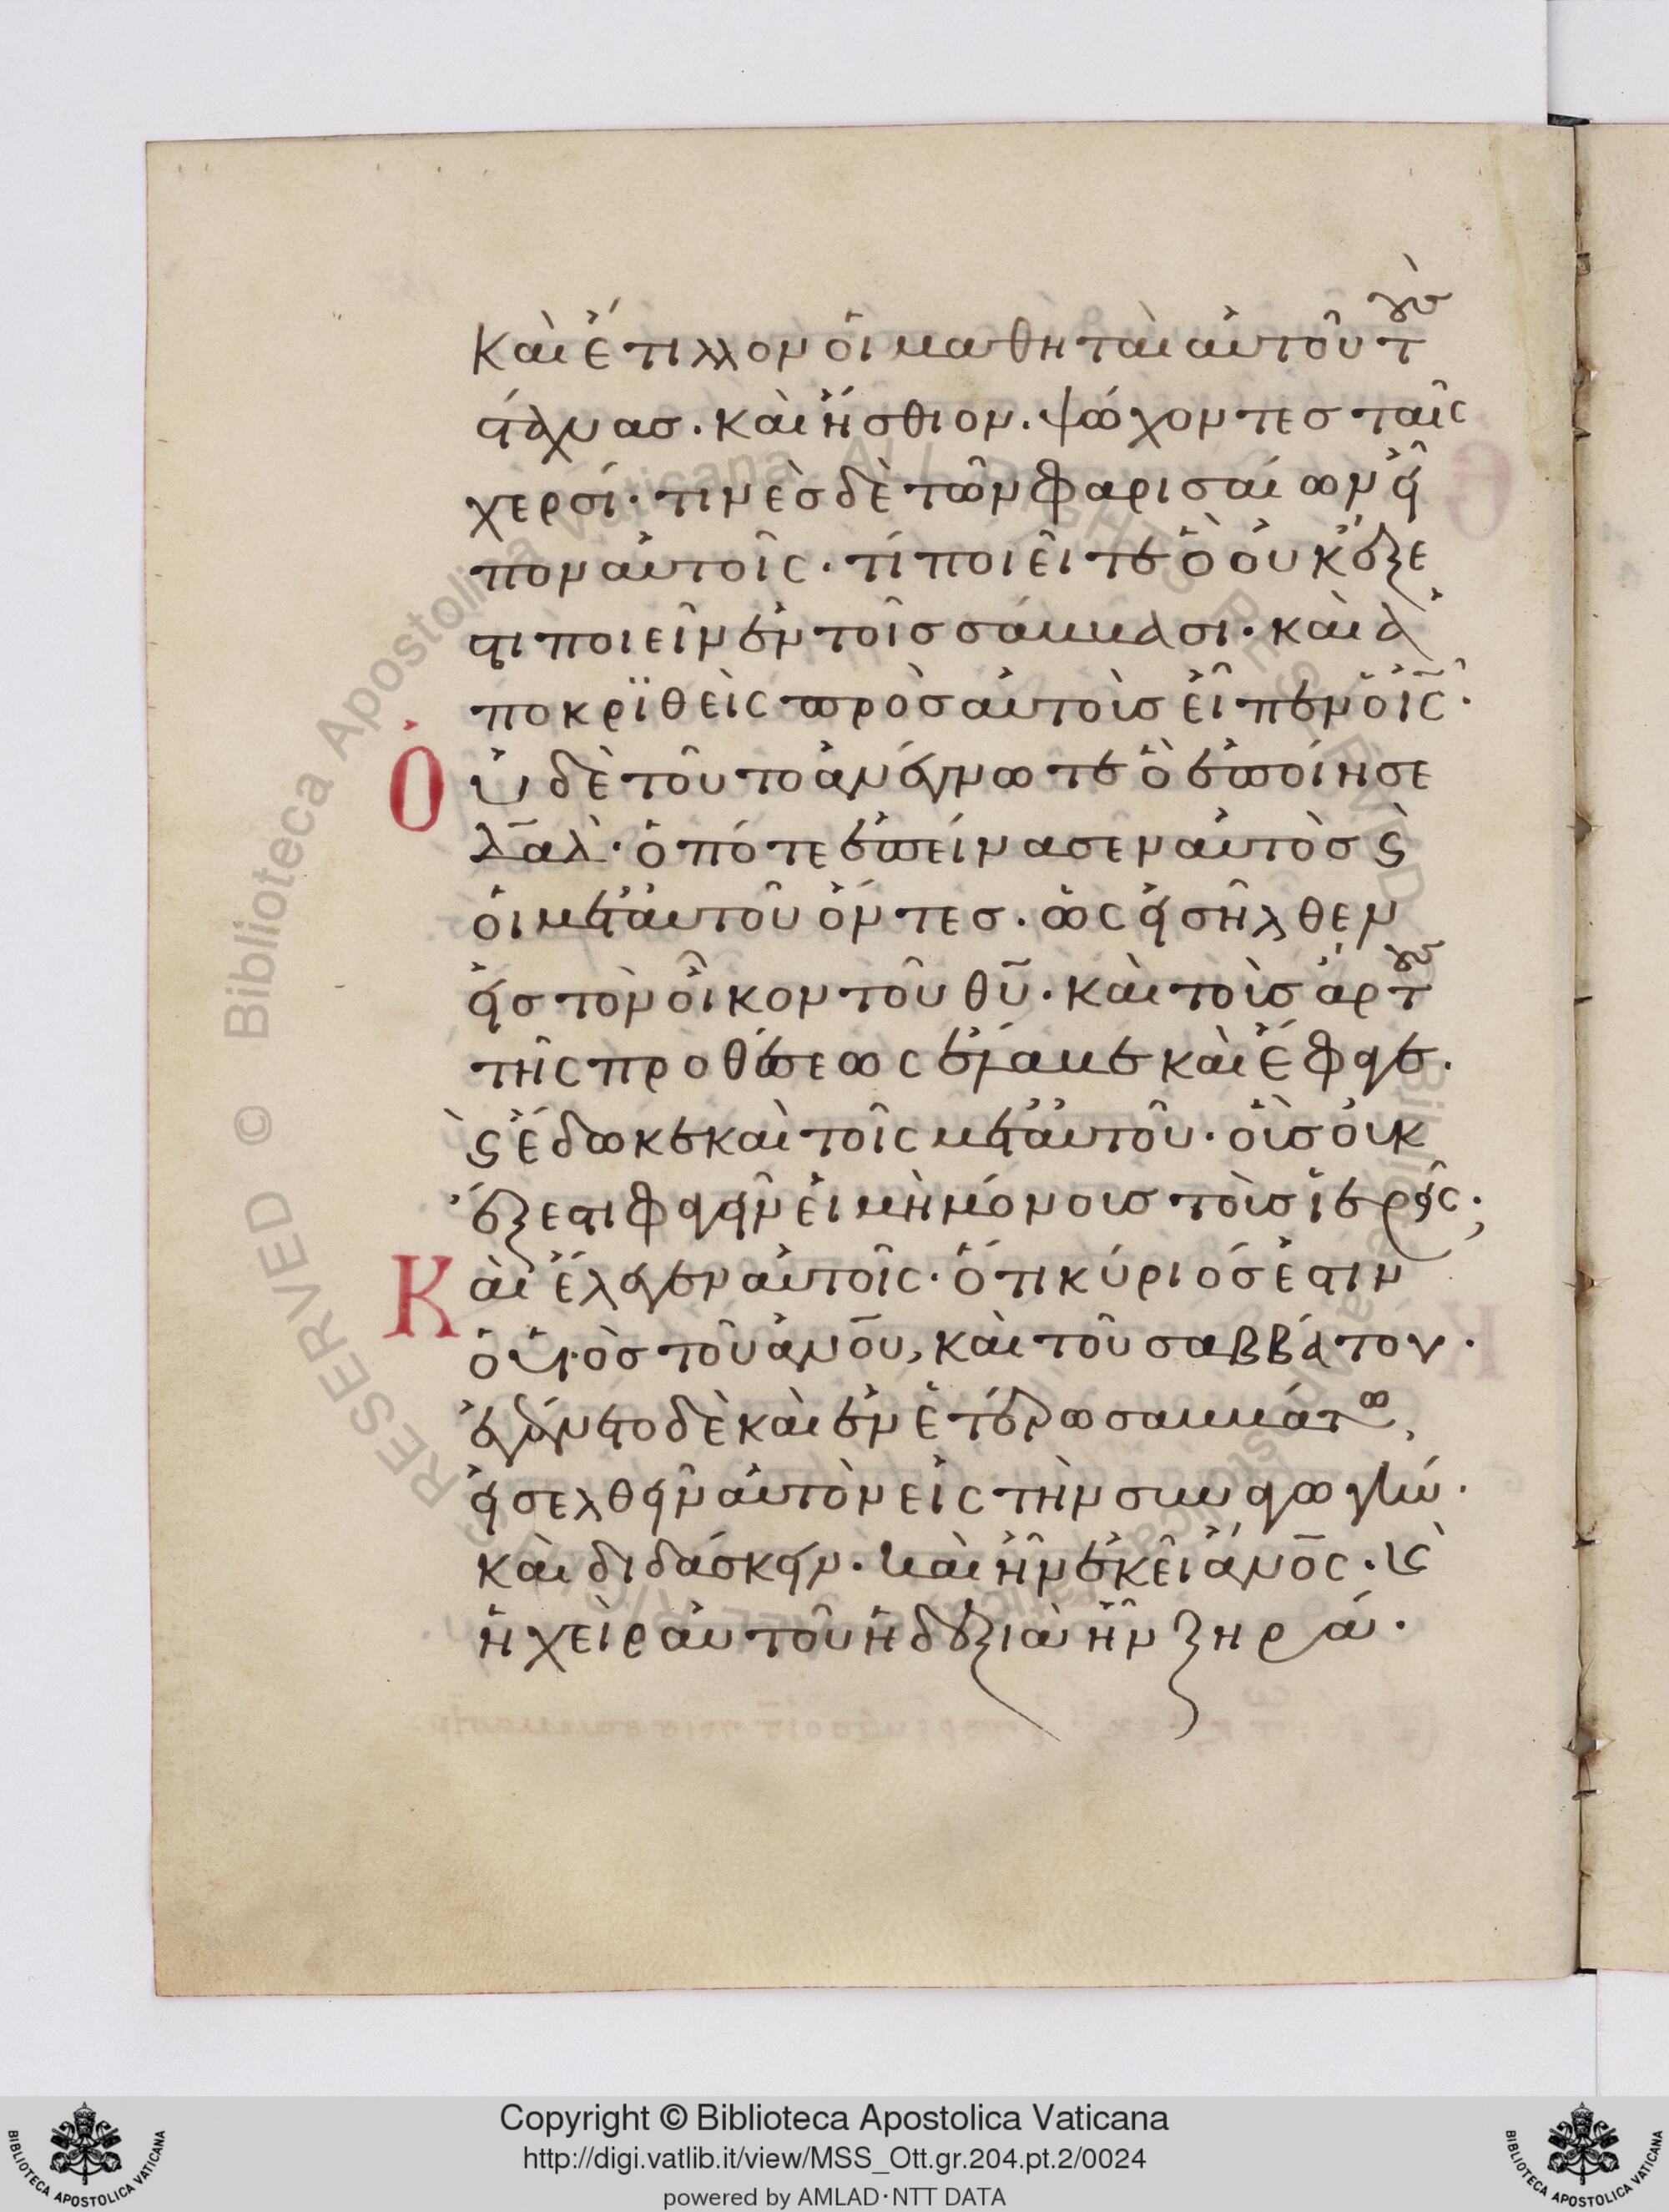 καὶ ἔτιλλον οἱ μαθηταὶ αὐτοῦ τοὺς
στάχυας. καὶ ἤσθιον. ψώχοντες ταῖς
χερσί· τινὲς δὲ τῶν φαρισαίων εἶ
πον αὐτοῖς· τί ποιεῖτε ὃ οὐκ ἔξε
στι ποιεῖν ἐν τοῖς σάββασι· καὶ ἀ
ποκρϊθεὶς πρὸς αὐτοὺς εἶπεν ὁ ἰ̅ς̅·
Οὐδὲ τοῦτο ἀνέγνωτε ὃ ἐποίησε
δ̅α̅δ̅· ὁπότε ἐπείνασεν αὐτὸς ϗ
οἱ μετ' αὐτοῦ ὄντες. ὡς εἰσῆλθεν
εἰς τὸν οἶκον τοῦ θ̅υ̅. καὶ τοὺς ἄρτους
τῆς προθέσεως ἔλαβε καὶ ἔφαγε.
ϗ ἔδωκε καὶ τοῖς μετ' αὐτοῦ. οὓς οὐκ
ἔξεστι φαγεῖν εἰ μὴ μόνους τοὺς ἱερεῖς;
Καὶ ἔλεγεν αὐτοῖς. ὅτι κύριός ἐστιν
ὁ υἱὸς τοῦ ἀ̅ν̅ο̅υ̅, καὶ τοῦ σαββάτου.
ἐγένετο δὲ καὶ ἐν ἑτέρω σαββάτω,
εἰσελθεῖν αὐτὸν εἰς τὴν συναγωγήν.
καὶ διδάσκειν. καὶ ἦν ἐκεῖ ἄ̅ν̅ο̅ς̅. ϗ
ἡ χεὶρ αὐτοῦ ἡ δεξιὰ ἦν ξηρά.
Copyright © Biblioteca Apostolica Vaticana
http://digi.vatlib.it/view/MSS_Ott.gr.204.pt.2/0024
powered by AMLAD·NTT DATA